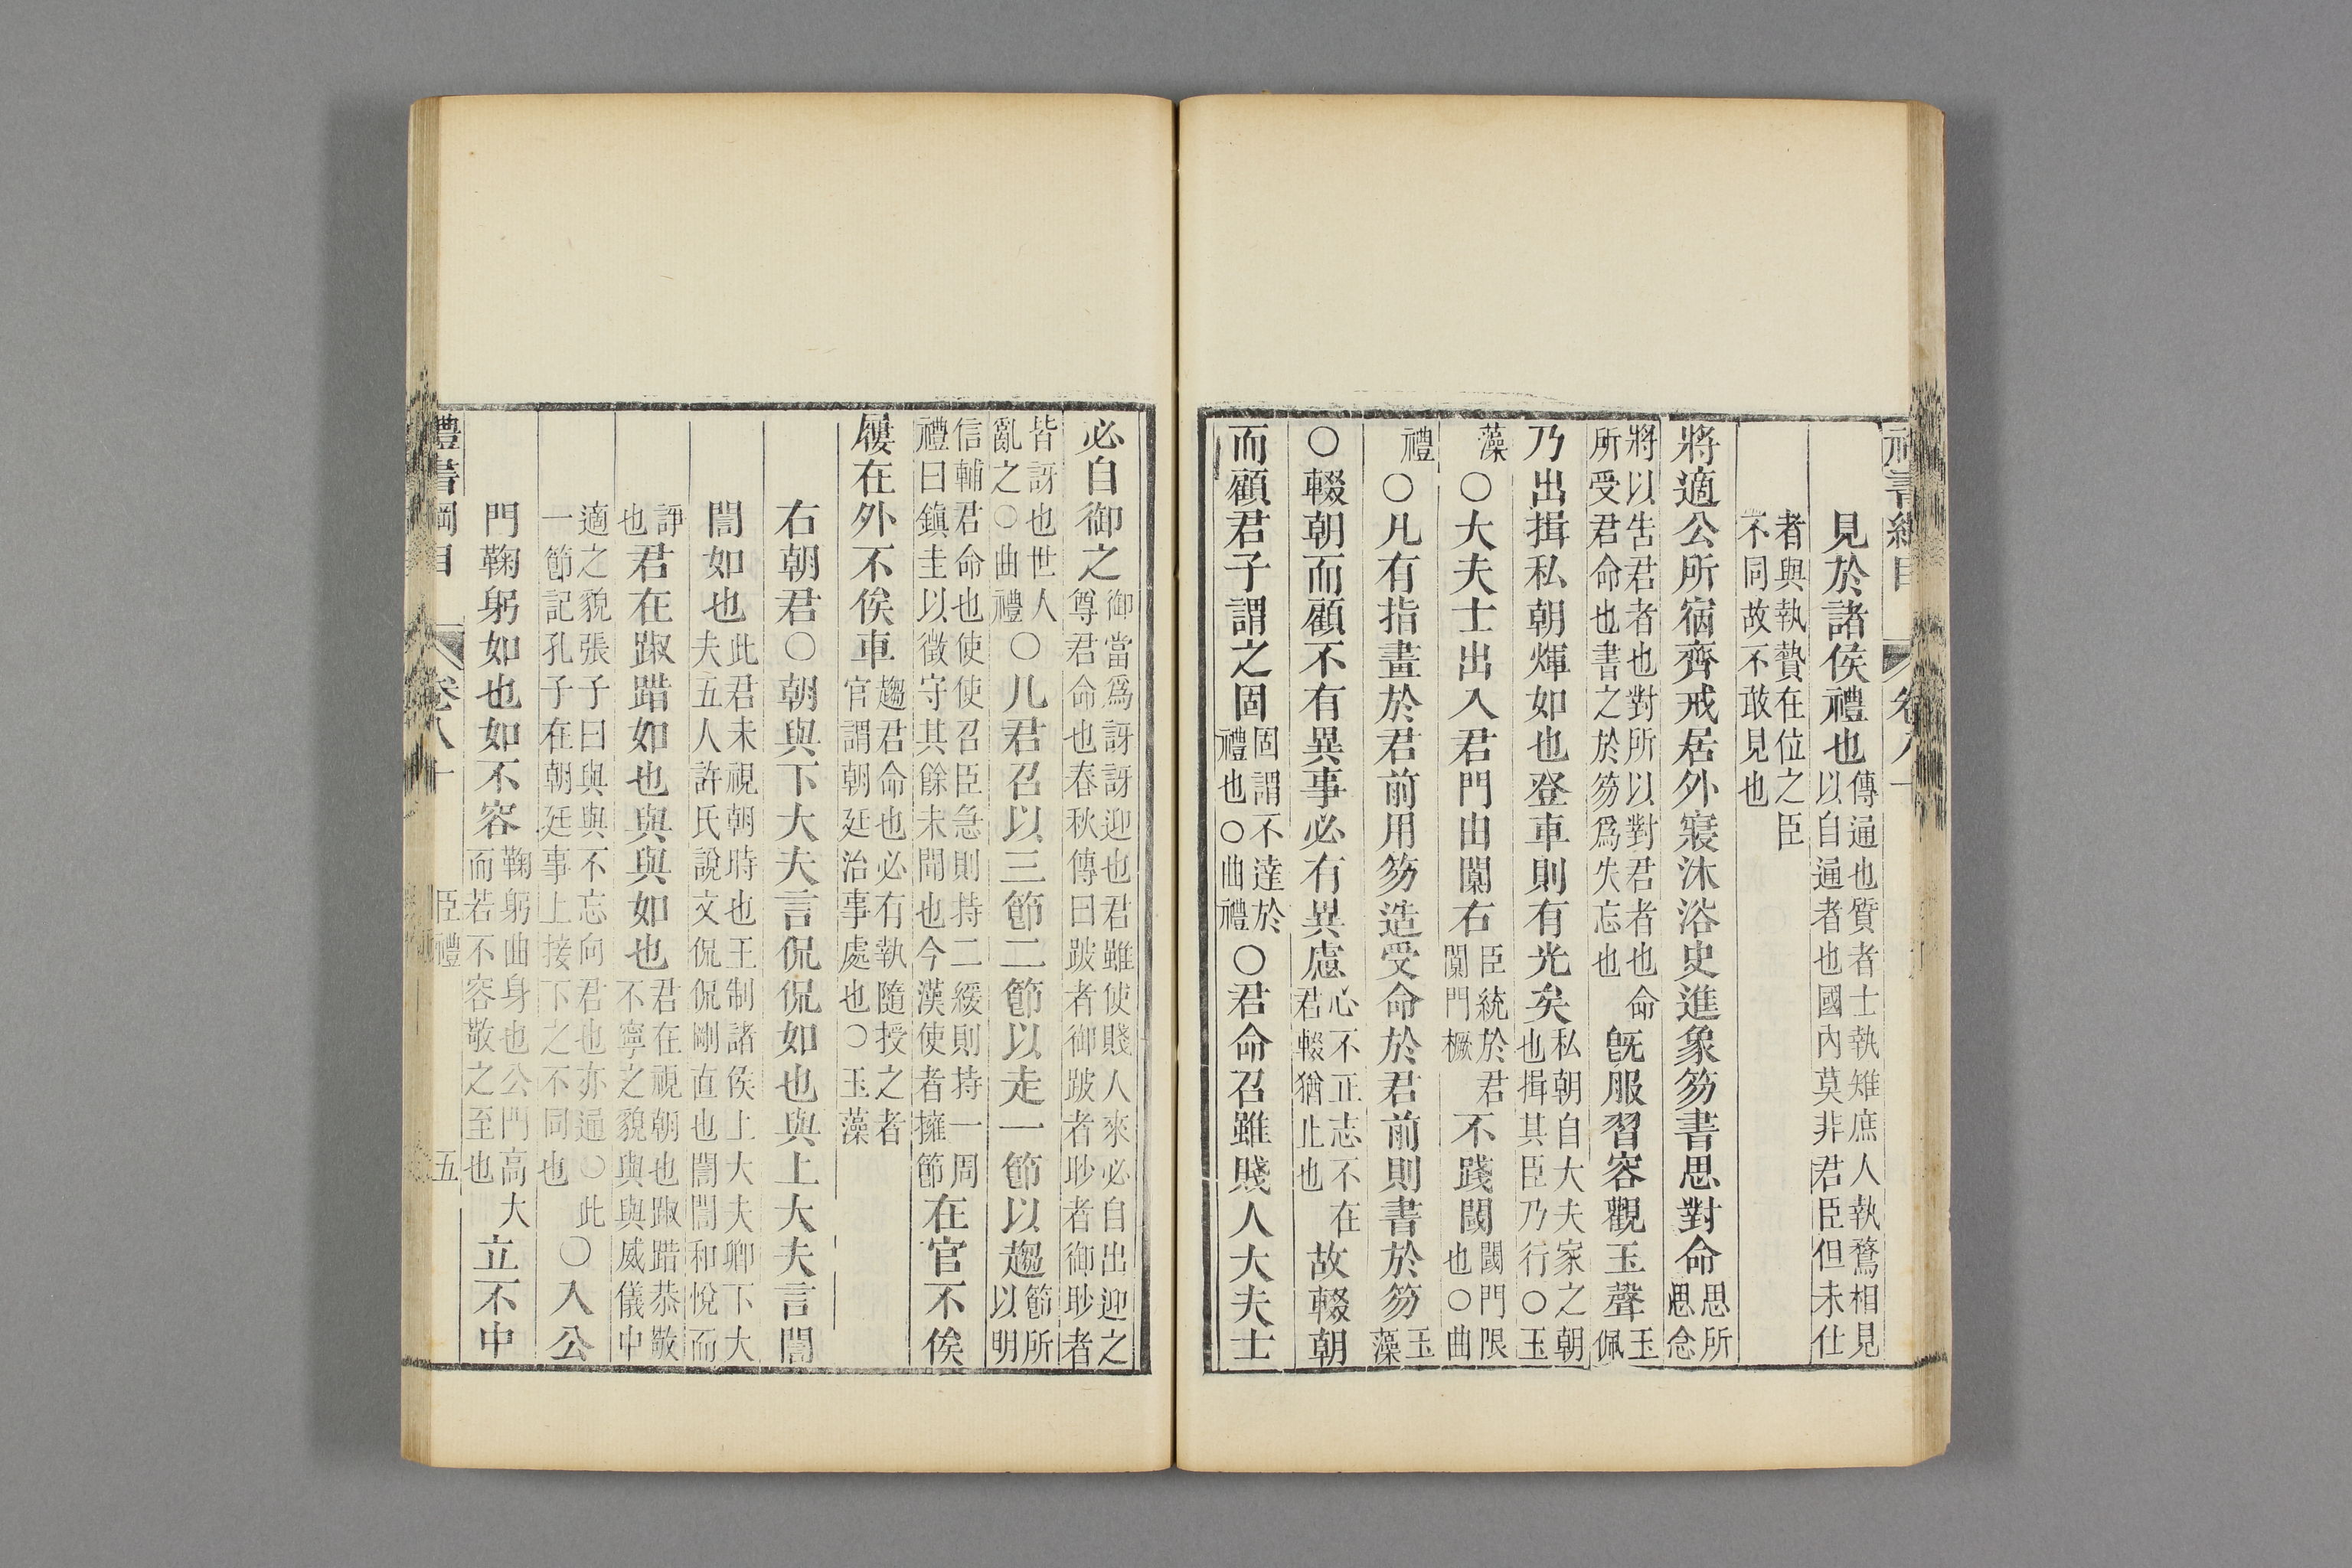 禮書綱目 卷八十
見於諸侯禮也傳通也質者士執雉庶人執鶩相見以自通者也國內莫非君臣但未仕
者與執贄在位之臣不同故不敢見也
將適公所宿齊戒居外寢沐浴史進象笏書思對命思所思念
將以告君者也對所以對君者也命所受君命也書之於笏爲失忘也既服習容觀玉聲玉佩
乃出揖私朝煇如也登車則有光矣私朝自大夫家之朝也揖其臣乃行○玉
藻○大夫士出入君門由闑右臣統於君闑門橛不踐閾閾門限也○曲
禮○凡有指畫於君前用笏造受命於君前則書於笏玉藻
○輟朝而顧不有異事必有異慮心不正志不在君輟猶止也故輟朝
而顧君子謂之固固謂不達於禮也○曲禮○君命召雖賤人大夫士
必自御之御當爲訝訝迎也君雖使賤人來必自出迎之尊君命也春秋傳曰跛者御跛者眇者御眇者
皆訝也世人亂之○曲禮○凡君召以三節二節以走一節以趨節所以明
信輔君命也使使召臣急則持二緩則持一周禮曰鎮圭以徵守其餘未聞也今漢使者擁節在官不俟
屨在外不俟車趨君命也必有執隨授之者官謂朝廷治事處也○玉藻
右朝君○朝與下大夫言侃侃如也與上大夫言誾
誾如也此君未視朝時也王制諸侯上大夫卿下大夫五人許氏說文侃侃剛直也誾誾和悅而
諍也君在踧踖如也與與如也君在視朝也踧踖恭敬不寧之貌與與威儀中
適之貌張子曰與與不忘向君也亦通○此一節記孔子在朝廷事上接下之不同也○入公
門鞠躬如也如不容鞠躬曲身也公門高大而若不容敬之至也立不中
禮書綱目 卷八十 臣禮 五